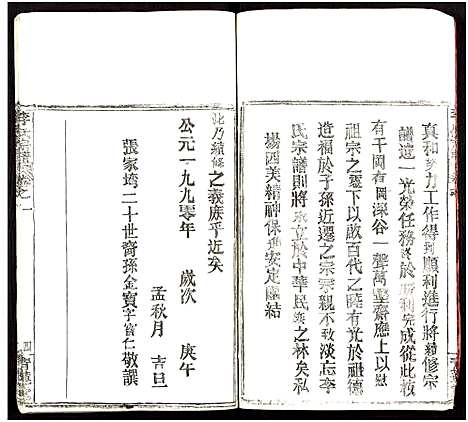 真和努力工作得到順利進行將續修宗
譜這一光榮任務終於勝利完成從此核
有千岡有岡深谷一聲萬壑齋應上以慰
祖宗之靈下以啟百代之曉有光於祖德
造福於子孫近遷之宗宗親不致淡忘李
氏宗譜即將永立於中華民族之林矣私
場西美精神保通安定團結
此乃續修之義庶乎近矣
公元一九九零年 歲次 庚午
孟秋月 吉旦
張家垮二十世裔孫金寶字官仁敬譔